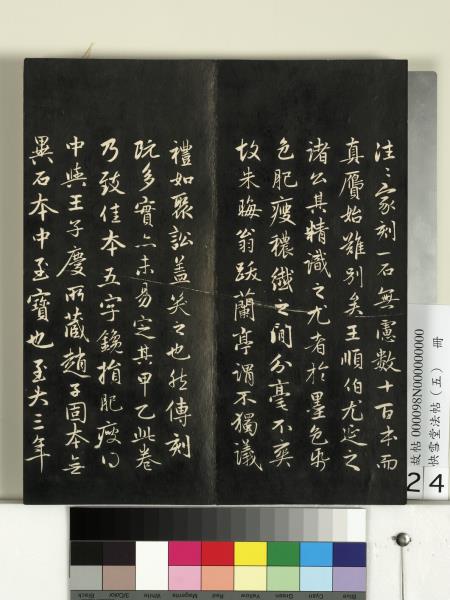 往々家刻一石無慮數十百本而
真贋始難別矣王順伯尤延之
諸公其精識之尤者於墨色紙
色肥瘦穠纖之間分毫不爽
故朱晦翁跋蘭亭謂不獨議
禮如聚訟蓋笑之也然傳刻
既多實亦未易定其甲乙此卷
乃致佳本五字鑱損肥瘦得
中與王子慶所藏趙子固本無
異石本中至寶也至大三年
快雪堂法帖（五） 冊
故帖 000098N000000000
24
Blue Cyan Green Yellow Red Magenta White 3/Color Black